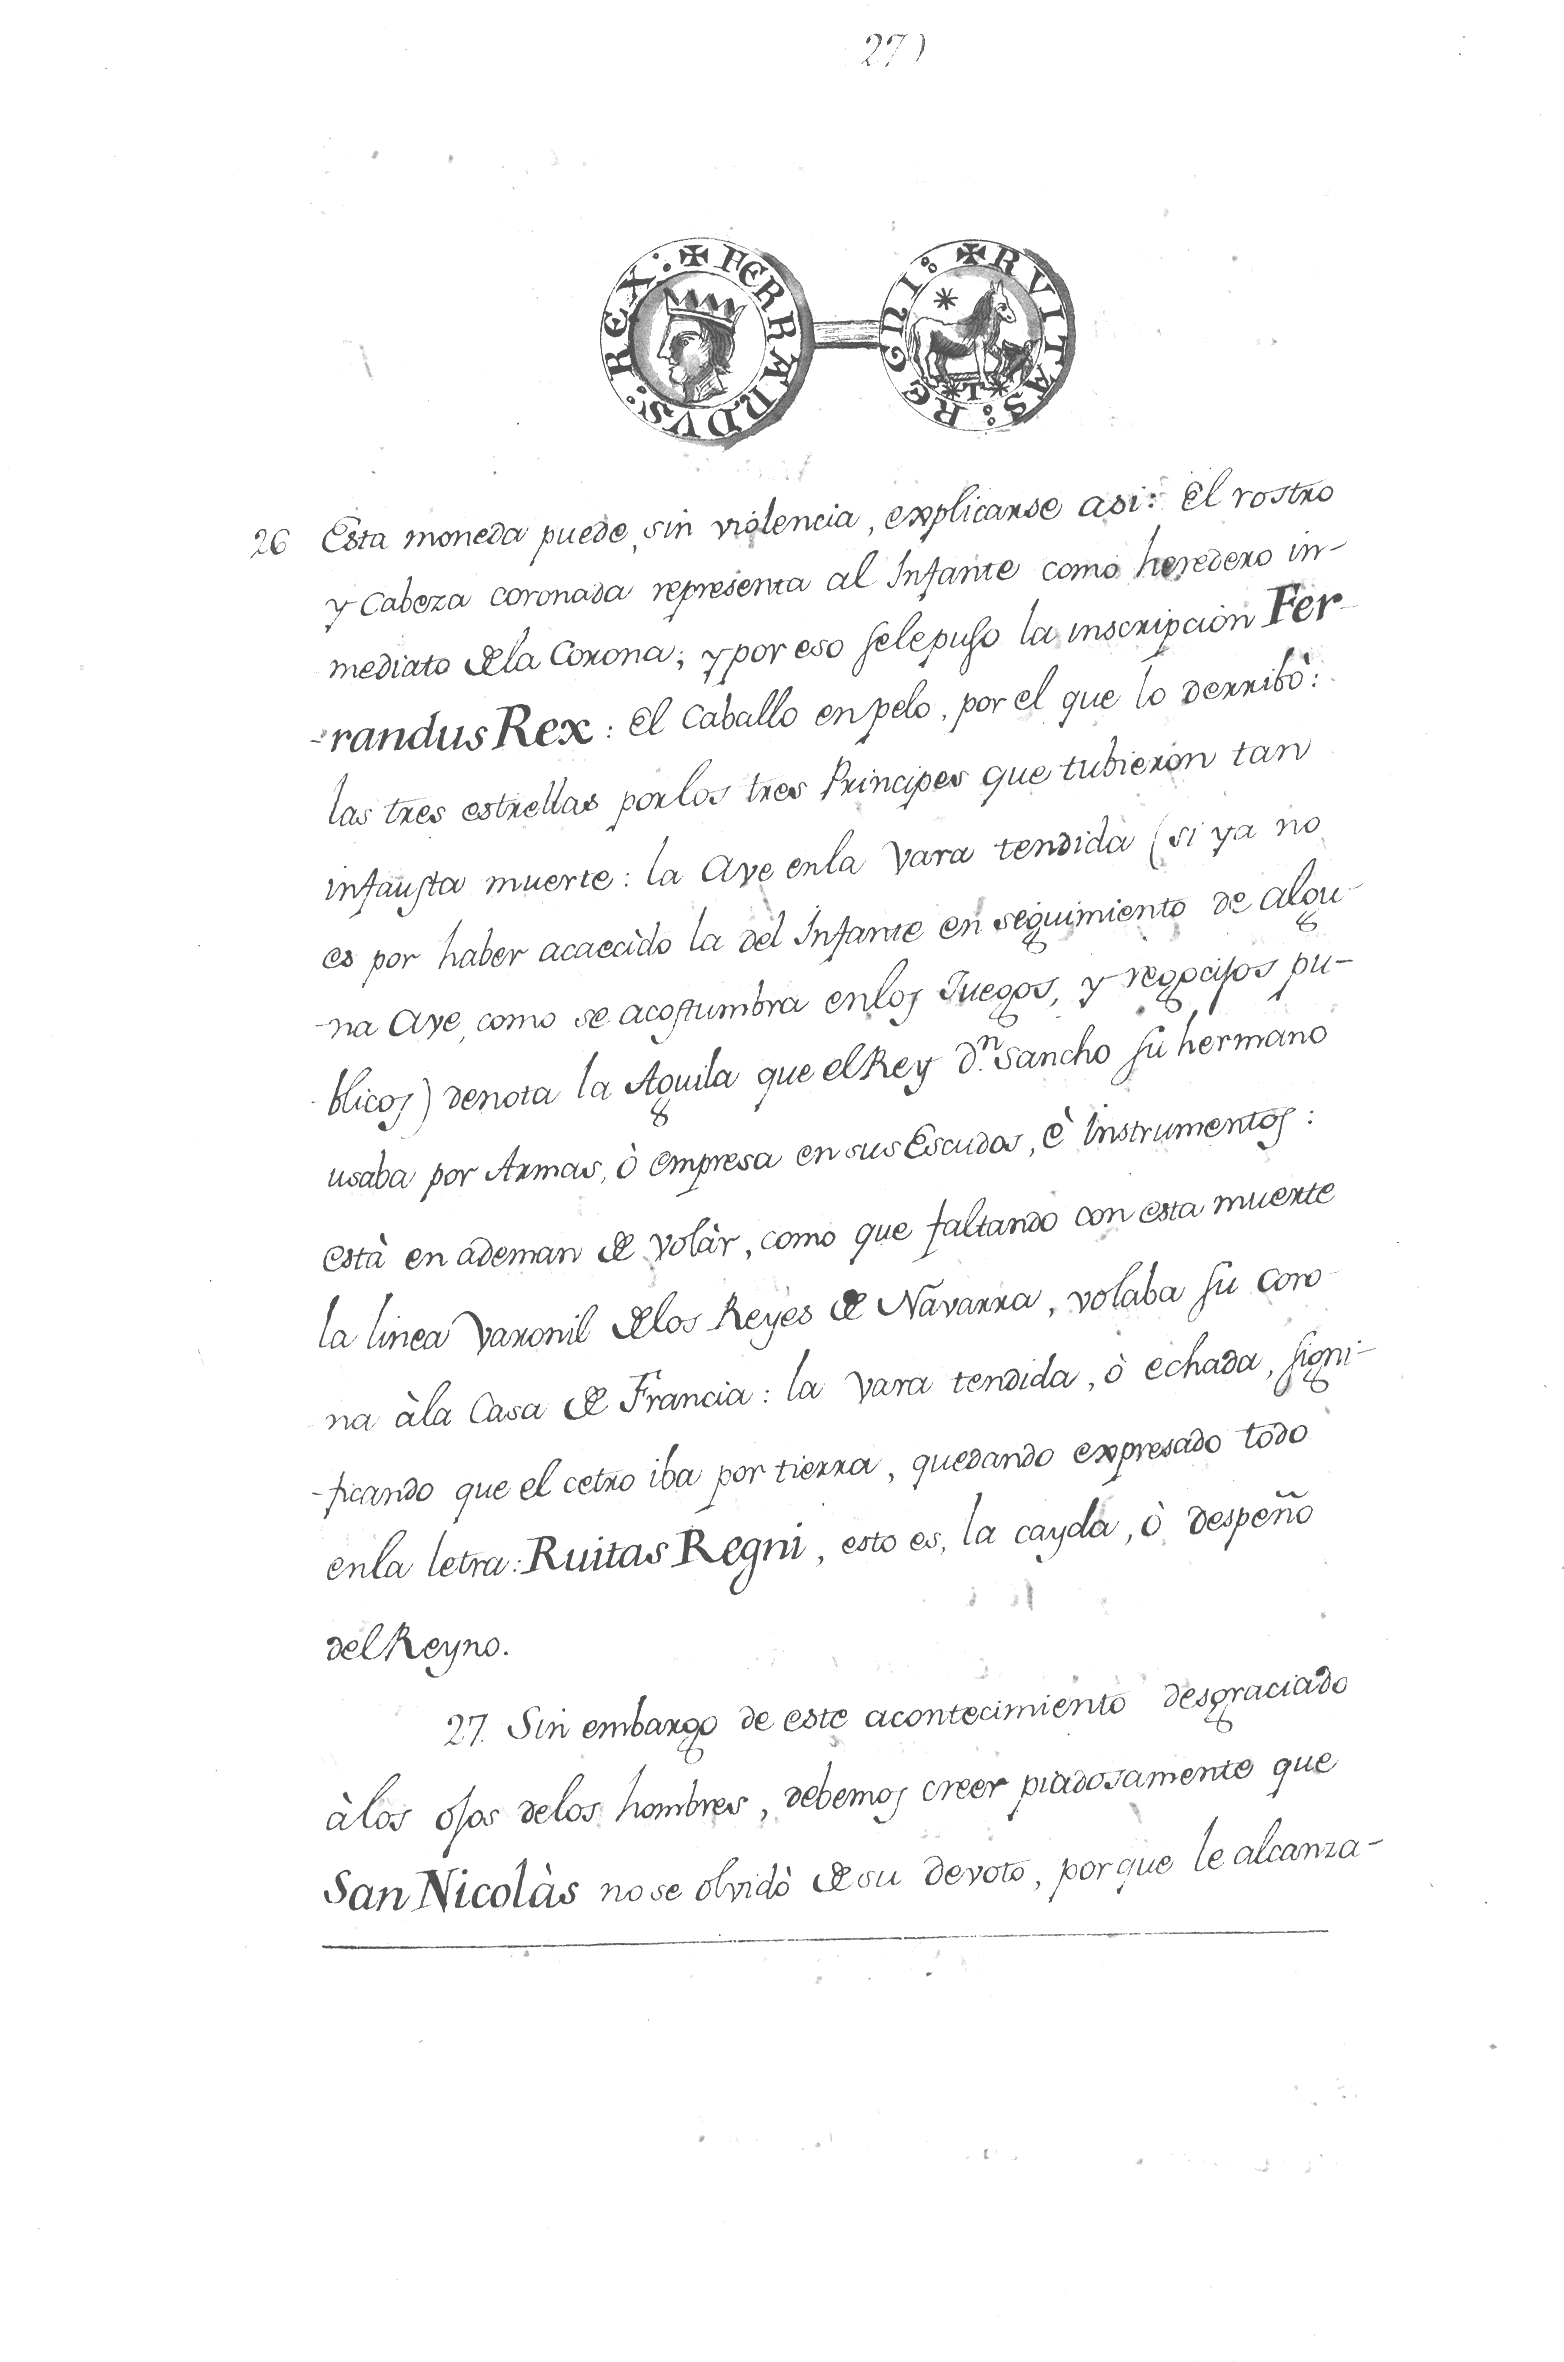 27)
✠ FERRANDVS: REX:
✠ RVITAS: REGNI:
T
26 Esta moneda puede, sin violencia, explicarse asi: el rostro
y Cabeza coronada representa al Infante como heredero in-
mediato de la Corona; y por eso se le puso la inscripcion Fer-
-randus Rex: el Caballo en pelo, por el que lo derribò:
las tres estrellas por los tres Principes que tubieron tan
infausta muerte: la Ave en la Vara tendida (si ya no
es por haber acaecido la del Infante en seguimiento de algu-
-na Ave, como se acostumbra en los Juegos, y regocijos pu-
blicos) denota la Aguila que el Rey d.ⁿ Sancho su hermano
usaba por Armas, ò empresa en sus Escudos, è Instrumentos:
està en ademan de volàr, como que faltando con esta muerte
la linea Varonil de los Reyes de Navarra, volaba su coro-
na à la Casa de Francia: la Vara tendida, ò echada, signi-
-ficando que el cetro iba por tierra, quedando expresado todo
en la letra: Ruitas Regni, esto es, la cayda, ò despeño
del Reyno.
27. Sin embargo de este acontecimiento desgraciado
à los ojos de los hombres, debemos creer piadosamente que
San Nicolàs no se olvidò de su devoto, porque le alcanza-